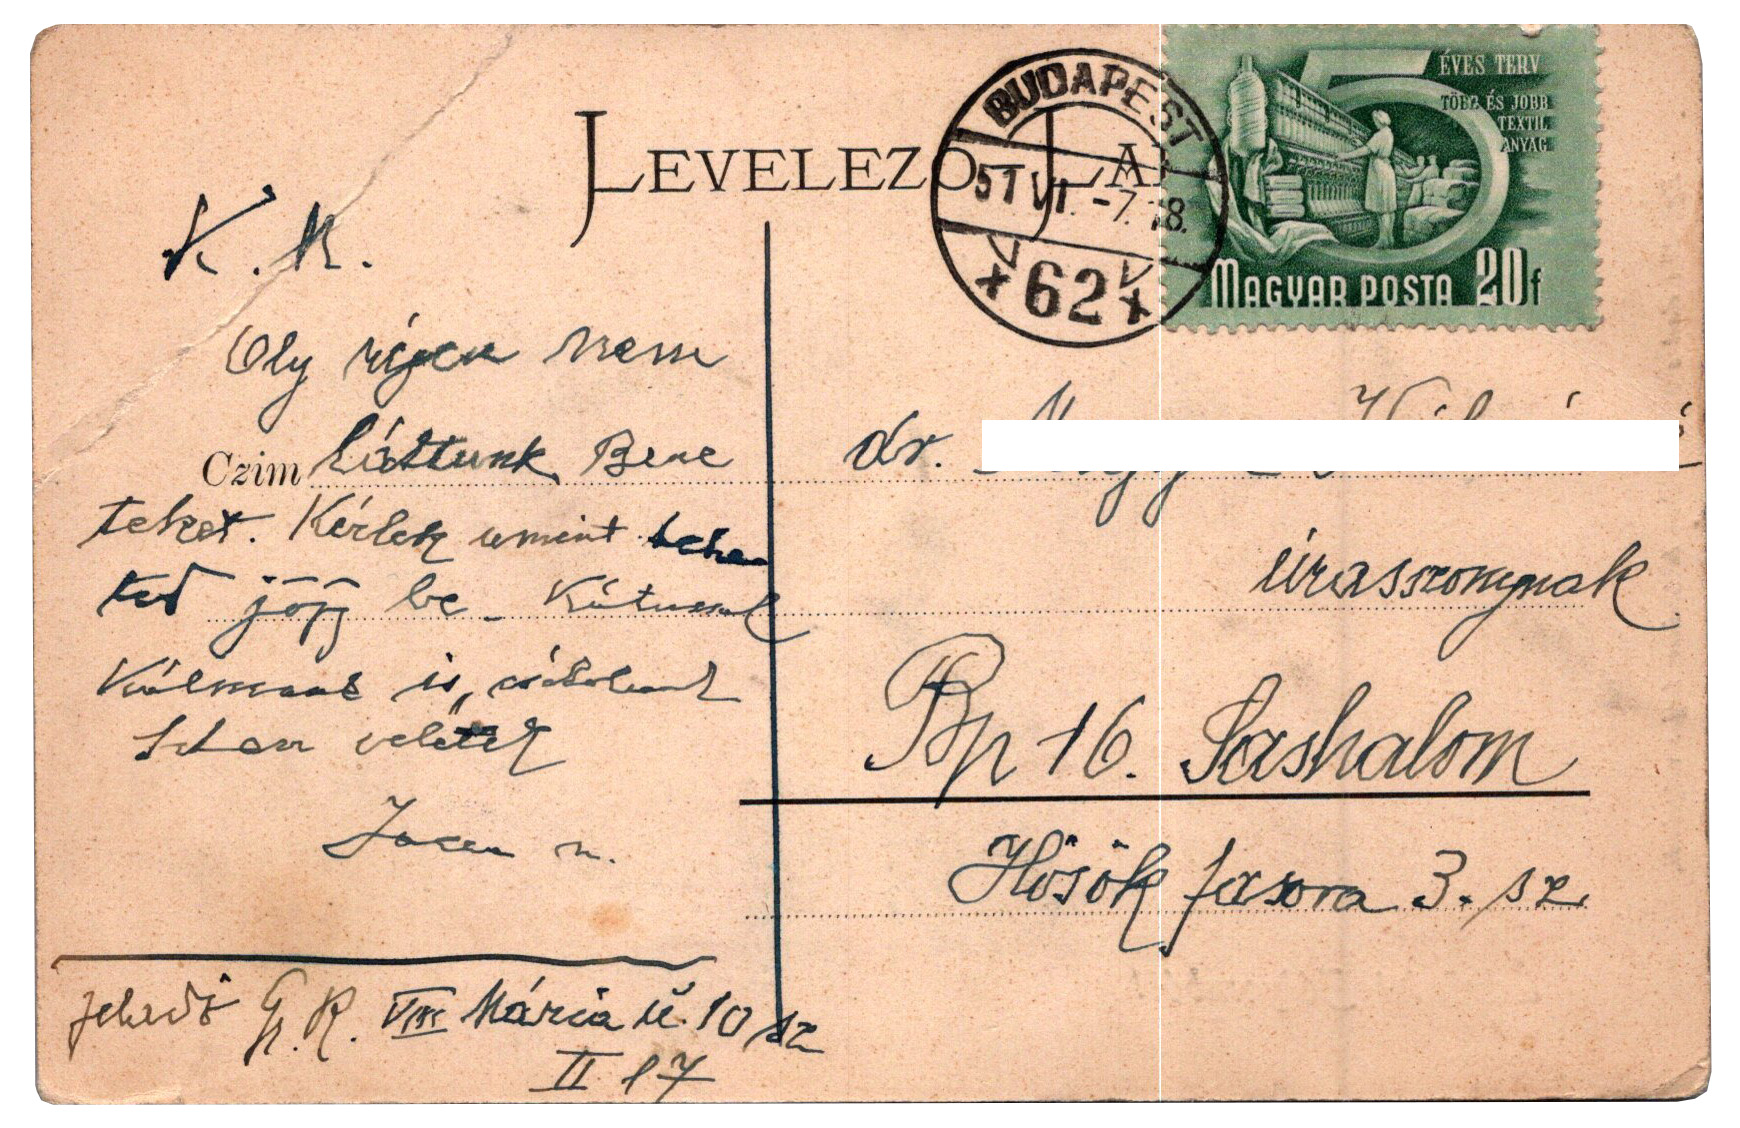 ÉVES TERV
TÖBB ÉS JOBB
TEXTIL
ANYAG
MAGYAR POSTA 20f
BUDAPEST
51 VI. -7. 18.
*62*
LEVELEZŐ LA
K. M.
Oly régen nem
Czim láttunk Bene
teket. Kérlek amint lehe
ted jöjj be. Katussal
Kálmánt is, csókolunk
Isten veletek
dr.
úrasszonynak
Bp 16. Sashalom
Hősök fasora 3. sz.
feladó G. R. VIII Mária u. 10 sz
II. 17